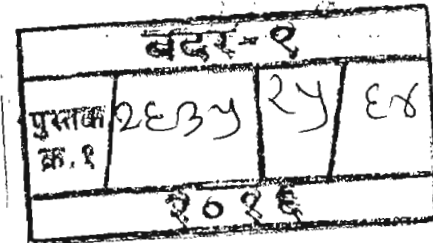 बदर-१
पुस्तक क्र. १ २६३५ २५ ६४
२०१६